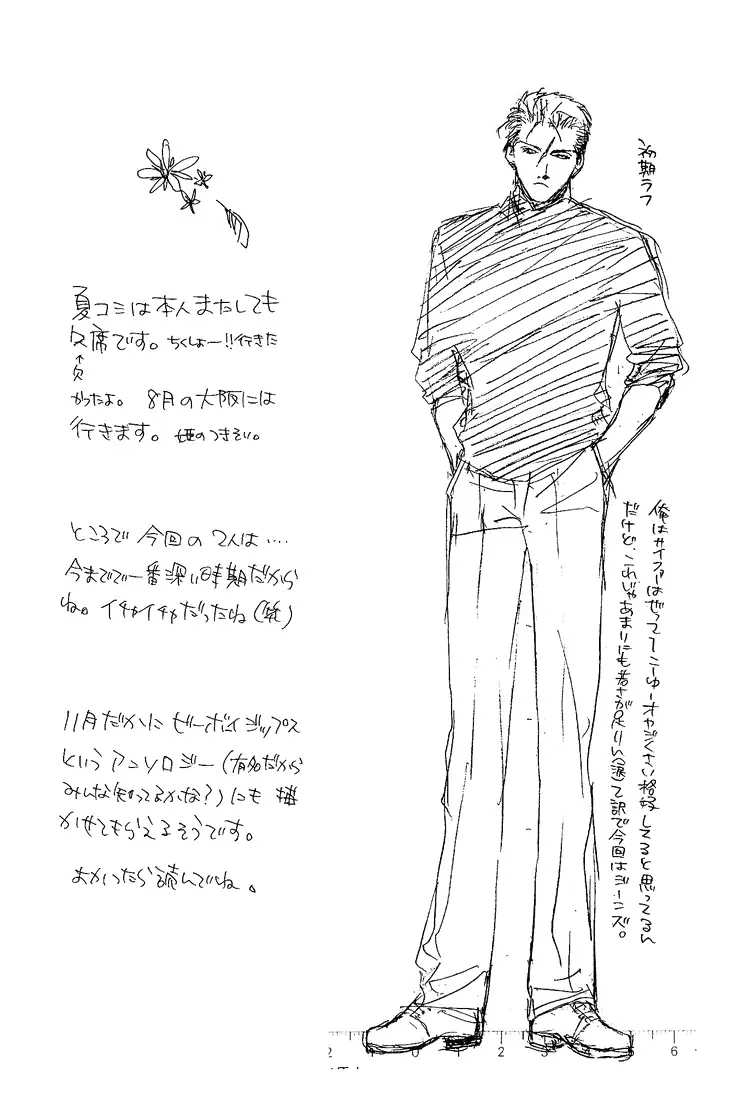 初期ラフ
夏コミは本人またしても
欠席です。ちくしょー!!行きた
↑
欠
かったよ。8月の大阪には
行きます。姫のつきそい。
ところで今回の2人は‥‥
今までで一番深い時期だから
ね。イチャイチャだったね(笑)
11月だかに ビーボーイジップス
というアンソロジー(有名だから
みんな知ってるかな?)にも描
かせてもらえるそうです。
よかったら読んでね。
俺はサイファーはぜってーこーゆーオヤジくさい格好してると思ってるん
だけど、これじゃあまりにも若さが足りん(涙)て訳で今回はジーンズ。
2 0 2 3 6